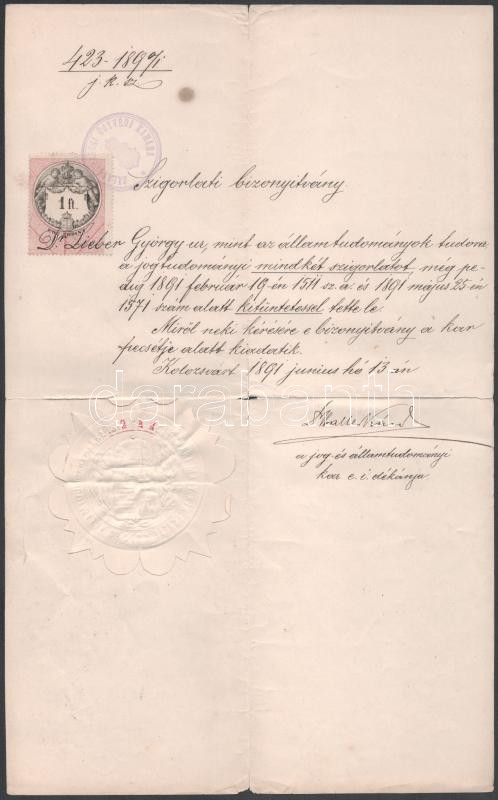 423-1890/1
j. k. sz
1 ft.
Szigorlati bizonyitvány.
Dr Lieber György ur, mint az államtudományok tudora
a jogtudományi mindkét szigorlatot, még pe-
dig 1891 február 19-én 1511 sz. a. és 1891 május 25-én
1571 szám alatt kitüntetéssel tette le.
Miről neki kérésére e bizonyitvány a kar
pecsétje alatt kiadatik.
Kolozsvárt 1891 junius hó 13-án
a jog- és államtudományi
kar e. i. dékánja
Darabanth